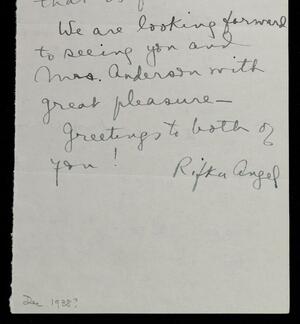 that
We are looking forward
to seeing you and
Mrs. Anderson with
great pleasure—
Greetings to both of
you!
Rifka Angel
Dec 1938?